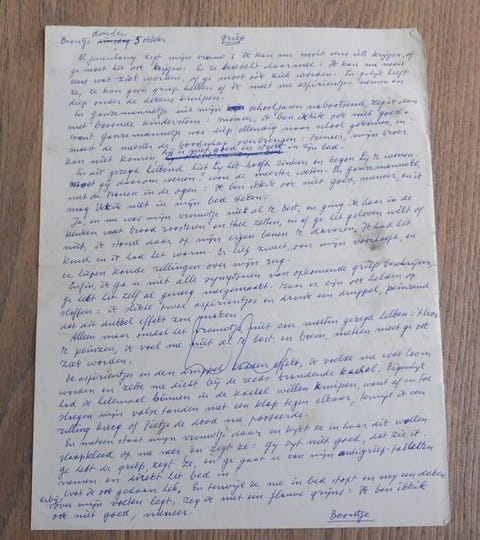 donder
Boontje dinsdag 5 oktober griep
Al jarenlang zegt mijn vrouw: Ik kan me nooit eens iets krijgen, of
ge moet het ook krijgen. En ze bedoelt daarmee: Ik kan me nooit
eens wat ziek worden, of ge moet óók ziek worden. En gelijk heeft
ze, ze kan geen griep hebben of ik moet me aspirientjes nemen en
diep onder de dekens kruipen.
En ganzemanneke uit mijn schooljaren nabootsend, zeg ik dan
met bevende kinderstem: meneer, ik ben ikkik ook niet goed.
Want ganzemanneke was diep ellendig naar school gekomen, en
moest de meester de boodschap overbringen: meneer, mijn broer
kan niet komen, hij is niet goed en steekt in zijn bed.
En dit gezegd hebbend liet hij het hoofd zinken en begon hij te wenen.
Moet gij daarom wenen? wou de meester weten. En Ganzemanneke,
met de tranen in de ogen: Ik ben ikkik ook niet goed, meneer, en ik
mag ikkik niet in mijn bed steken.
Ja, en nu was mijn vrouwtje niet al te best, en ging ik haar in de
keuken wat brood roosteren en thee zetten, en of ge het geloven wilt of
niet, ik stond daar op mijn eigen benen te daveren, ik had het
koud en ik had het warm. Er liep zweet over mijn voorhoofd, en
er liepen koude rillingen over mijn rug.
Enfin, ik ga u niet alle symptomen van opkomende griep beschrijven,
ge hebt het zelf al genoeg meegemaakt. Naar er zijn ook helden op
sloffen: ik slikte twee aspirientjes en dronk een druppel, peinzend
dat dit dubbel effekt zou maken.
Alleen maar omdat het vrouwtje niet zou moeten gezegd hebben: 't Was
te peinzen, ik voel me niet al te best, en boem, meteen moet ge ook
ziek worden.
De aspirientjes en den druppel hadden effekt, ik voelde me wat loom
worden en zette me dicht bij de reeds brandende kachel. Eigenlijk
had ik helemaal binnen in de kachel willen kruipen, want af en toe
sloegen mijn valse tanden met een klap tegen elkaar, terwijl ik een
rilling kreeg of Pietje de dood me passeerde.
En meteen staat mijn vrouwtje daar en kijkt ze in haar dik wollen
slaapkleed op me neer en zegt ze: Gij zijt niet goed, dat zie ik.
Ge hebt de griep, zegt ze, en ge gaat u van mijn antigriep-tabletten
nemen en direkt het bed in!
Wat ik ook gedaan heb, en terwijl ze me in bed stopt en nog een deken
extra over mijn voeten legt, zeg ik met een flauwe grijns: Ik ben ikkik
ook niet goed, meneer.
Boontje